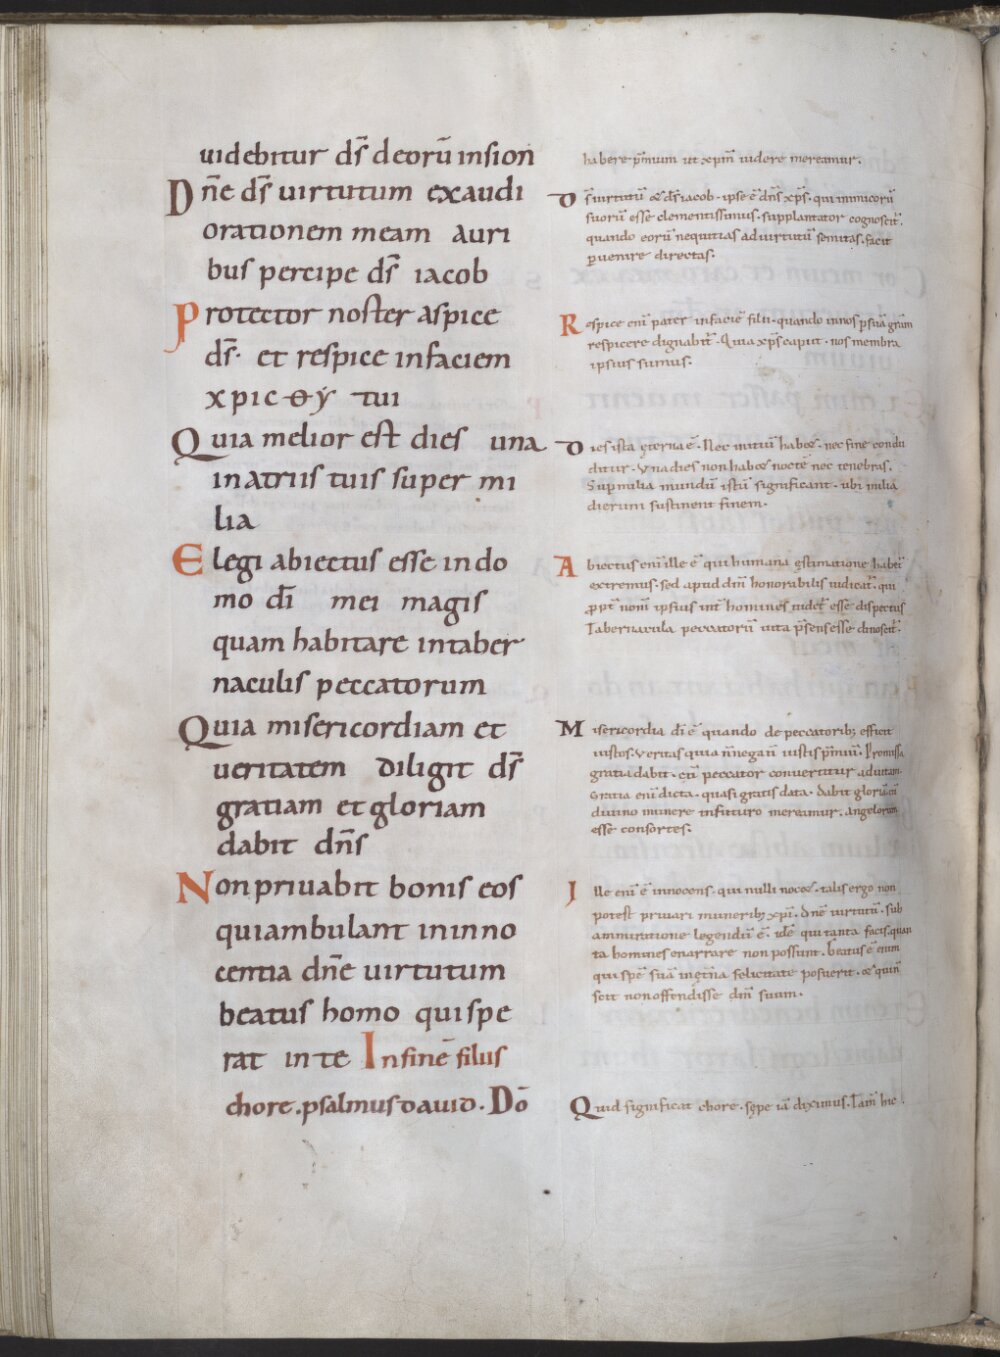 uidebitur ds̄ deorū insion
Dn̄e ds̄ uirtutum exaudi
orationem meam auri
bus percipe ds̄ iacob
Protector noster aspice
ds̄· et respice infaciem
xpictȳ tui
Quia melior est dies una
inatriis tuis super mi
lia
Elegi abiectus esse indo
mo dī mei magis
quam habitare intaber
naculis peccatorum
Quia misericordiam et
ueritatem diligit ds̄
gratiam et gloriam
dabit dn̄s
Non priuabit bonis eos
quiambulant ininno
centia dn̄e uirtutum
beatus homo quispe
rat inte Infinē filus
chore. psalmus dauid. Dō
habere p̄mium ut xpm̄ uidere mereamur.
Ds̄ uirtutū & ds̄ iacob· ipse ē dn̄s xp̄s· qui inimicorū
suorū esse clementissimus· supplantator cognoscit̄.
quando eorū nequitias aduirtutū semitas· facit
puenire directas.
Respice enī pater infaciē filii· quando innos p̄ suā grām
respicere dignabit̄· Quia xp̄s caput· nos membra
ipsius sumus.
Dies ista ęterna ē· Nec initiū hab&· nec fine condu
ditur· Vna dies non hab& noctē nec tenebras.
Sup milia mundū istū significant· ubi milia
dierum sustinent finem.
Abiectus enī ille ē qui humana ęstimatione habet̄
extremus· sed apud dm̄ honorabilis iudicat̄· qui
ppt̄ nom̄ ipsius int̄ homines uidet̄ esse dispectus
Tabernacula peccatorū uita p̄sens esse dinoscit̄.
Misericordia dī ē quando de peccatorib; efficit
iustos. ueritas quia n̄ negat̄ iustis p̄miū. Promissa
gratiā dabit· cū peccator conuertitur aduitam.
Gratia enī dicta· quasi gratis data· dabit gloriā cū
diuino munere infuturo mereamur. angelorum
esse consortes.
Ille enī ē innocens· qui nulli noc&· talis ergo non
potest priuari munerib; xpī· dn̄e uirtutū· sub
ammiratione legendū ē· idē qui tanta facis· quan
ta homines enarrare non possunt. beatus ē enim
qui spē suā inęt̄na felicitate posuerit· &
scit non offendisse dm̄ suum.
Quid significat chore· sępe iā diximus. Tam̄ hic